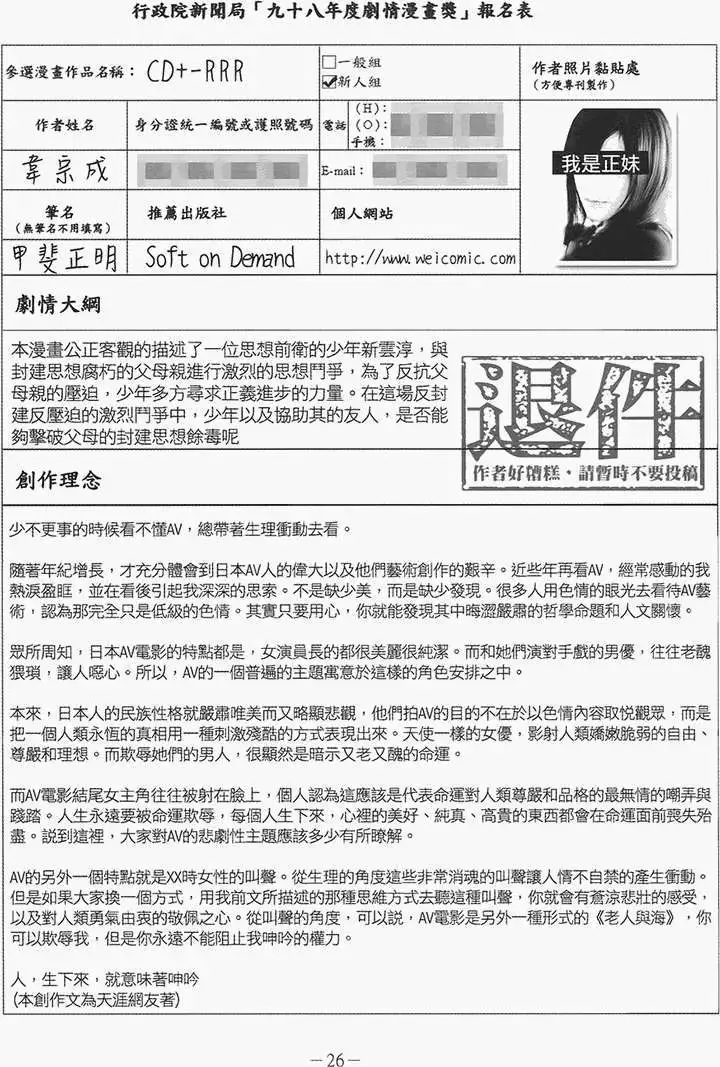 行政院新聞局「九十八年度劇情漫畫獎」報名表
參選漫畫作品名稱：CD+-RRR
□一般組
☑新人組
作者照片黏貼處
（方便專刊製作）
作者姓名
身分證統一編號或護照號碼
電話
(H)：
(O)：
手機：
韋宗成
E-mail：
我是正妹
筆名
（無筆名不用填寫）
推薦出版社
個人網站
甲斐正明
Soft on Demand
http://www.weicomic.com
劇情大綱
本漫畫公正客觀的描述了一位思想前衛的少年新雲淳，與
封建思想腐朽的父母親進行激烈的思想鬥爭，為了反抗父
母親的壓迫，少年多方尋求正義進步的力量。在這場反封
建反壓迫的激烈鬥爭中，少年以及協助其的友人，是否能
夠擊破父母的封建思想餘毒呢
退件
作者好糟糕，請暫時不要投稿
創作理念
少不更事的時候看不懂AV，總帶著生理衝動去看。
隨著年紀增長，才充分體會到日本AV人的偉大以及他們藝術創作的艱辛。近些年再看AV，經常感動的我
熱淚盈眶，並在看後引起我深深的思索。不是缺少美，而是缺少發現。很多人用色情的眼光去看待AV藝
術，認為那完全只是低級的色情。其實只要用心，你就能發現其中晦澀嚴肅的哲學命題和人文關懷。
眾所周知，日本AV電影的特點都是，女演員長的都很美麗很純潔。而和她們演對手戲的男優，往往老醜
猥瑣，讓人噁心。所以，AV的一個普遍的主題寓意於這樣的角色安排之中。
本來，日本人的民族性格就嚴肅唯美而又略顯悲觀，他們拍AV的目的不在於以色情內容取悅觀眾，而是
把一個人類永恆的真相用一種刺激殘酷的方式表現出來。天使一樣的女優，影射人類嬌嫩脆弱的自由、
尊嚴和理想。而欺辱她們的男人，很顯然是暗示又老又醜的命運。
而AV電影結尾女主角往往被射在臉上，個人認為這應該是代表命運對人類尊嚴和品格的最無情的嘲弄與
踐踏。人生永遠要被命運欺辱，每個人生下來，心裡的美好、純真、高貴的東西都會在命運面前喪失殆
盡。說到這裡，大家對AV的悲劇性主題應該多少有所瞭解。
AV的另外一個特點就是XX時女性的叫聲。從生理的角度這些非常消魂的叫聲讓人情不自禁的產生衝動。
但是如果大家換一個方式，用我前文所描述的那種思維方式去聽這種叫聲，你就會有蒼涼悲壯的感受，
以及對人類勇氣由衷的敬佩之心。從叫聲的角度，可以說，AV電影是另外一種形式的《老人與海》，你
可以欺辱我，但是你永遠不能阻止我呻吟的權力。
人，生下來，就意味著呻吟
(本創作文為天涯網友著)
－26－